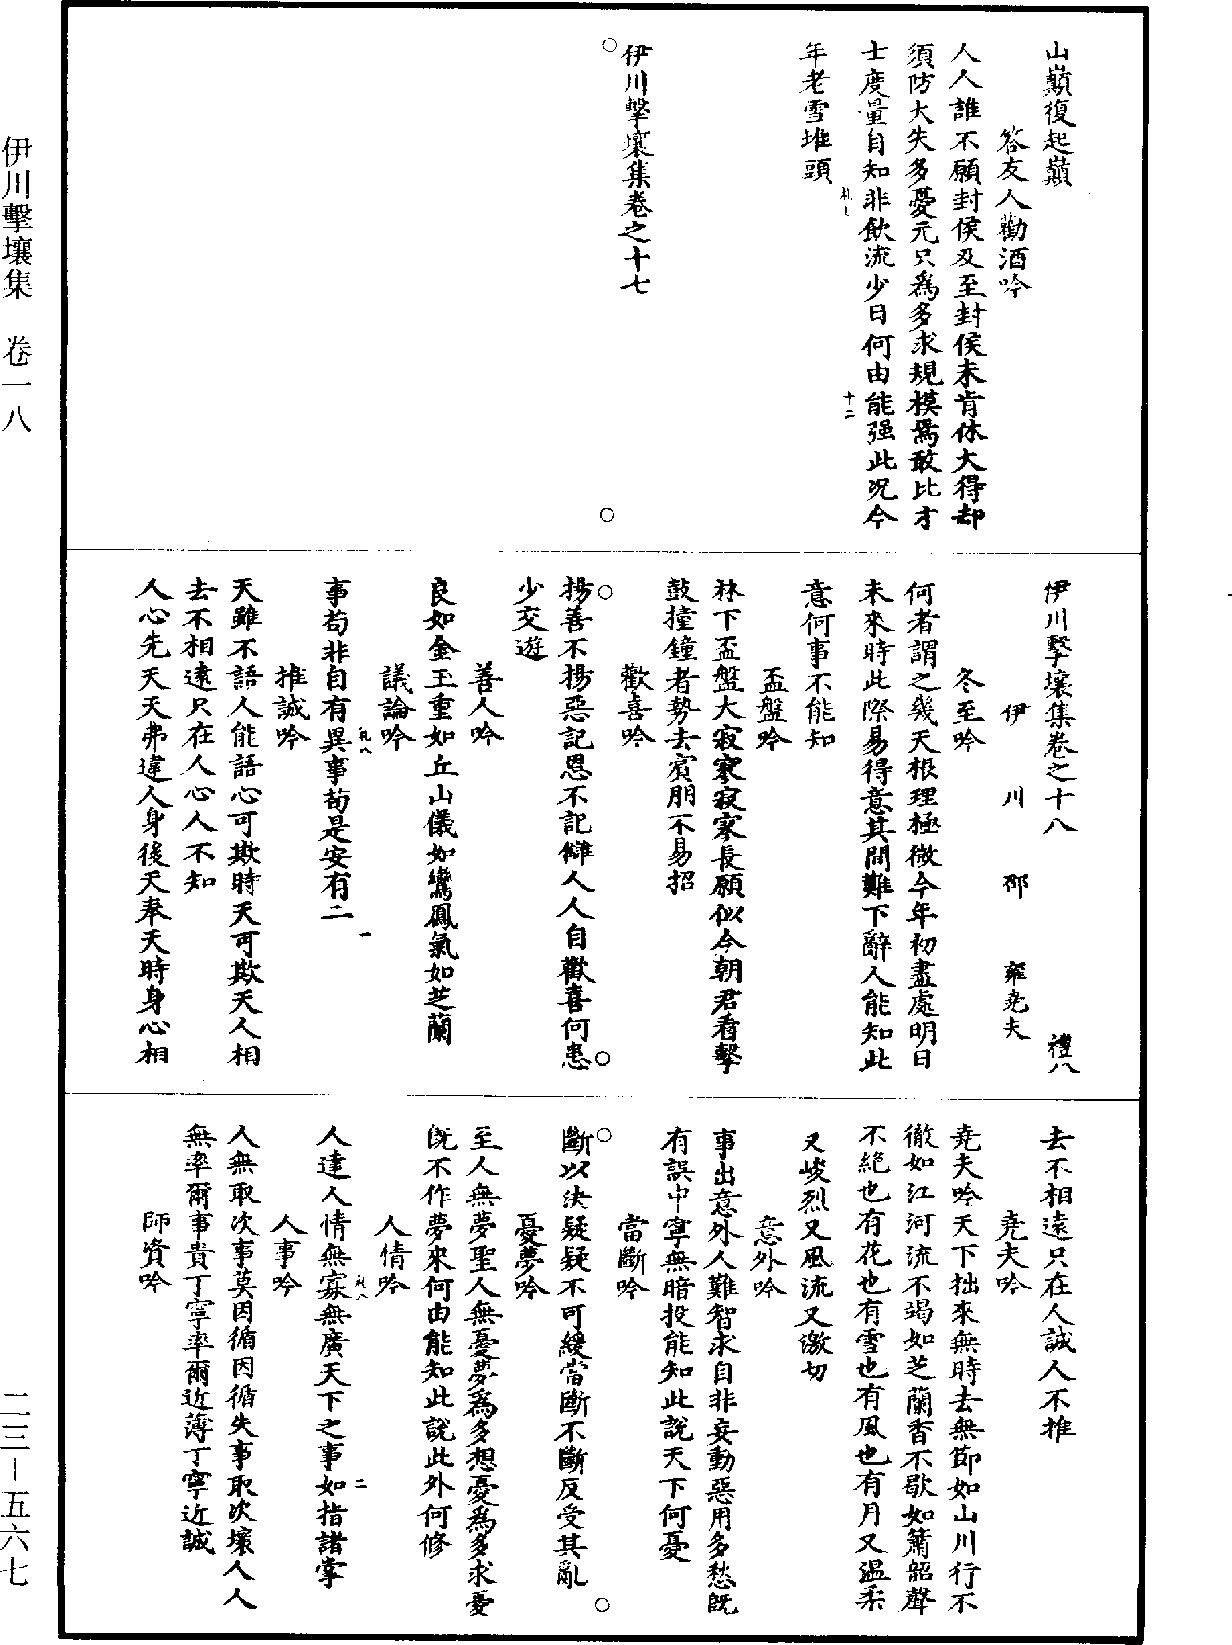 山巔復起巔
答友人勸酒吟
人人誰不願封侯及至封侯未肯休大得却
須防大失多憂元只爲多求規模焉敢比才
士度量自知非飲流少日何由能强此况今
年老雪堆頭
十二
伊川擊壤集卷之十七
伊川擊壤集卷之十八
禮八
伊川邵雍堯夫
冬至吟
何者謂之幾天根理極微今年初盡處明日
未來時此際易得意其間難下辭人能知此
意何事不能知
盃盤吟
林下盃盤大寂寥寂寥長願似今朝君看擊
鼓撞鐘者勢去賓朋不易招
歡喜吟
揚善不揚惡記恩不記讎人人自歡喜何患
少交遊
善人吟
良如金玉重如丘山儀如鸞鳳氣如芝蘭
議論吟
事苟非自有異事苟是安有二
一
推誠吟
天雖不語人能語心可欺時天可欺天人相
去不相遠只在人心人不知
人心先天天弗違人身後天奉天時身心相
去不相遠只在人誠人不推
堯夫吟
堯夫吟天下拙來無時去無節如山川行不
徹如江河流不竭如芝蘭香不歇如簫韶聲
不絕也有花也有雪也有風也有月又溫柔
又峻烈又風流又激切
意外吟
事出意外人難智求自非妄動惡用多愁既
有誤中寧無暗投能知此說天下何憂
當斷吟
斷以決疑疑不可緩當斷不斷反受其亂
憂夢吟
至人無夢聖人無憂夢爲多想憂爲多求憂
既不作夢來何由能知此說此外何修
人情吟
人達人情無寡無廣天下之事如指諸掌
二
人事吟
人無取次事莫因循因循失事取次壞人人
無率爾事貴丁寧率爾近薄丁寧近誠
師資吟
伊川擊壤集 卷一八
二三－五六七